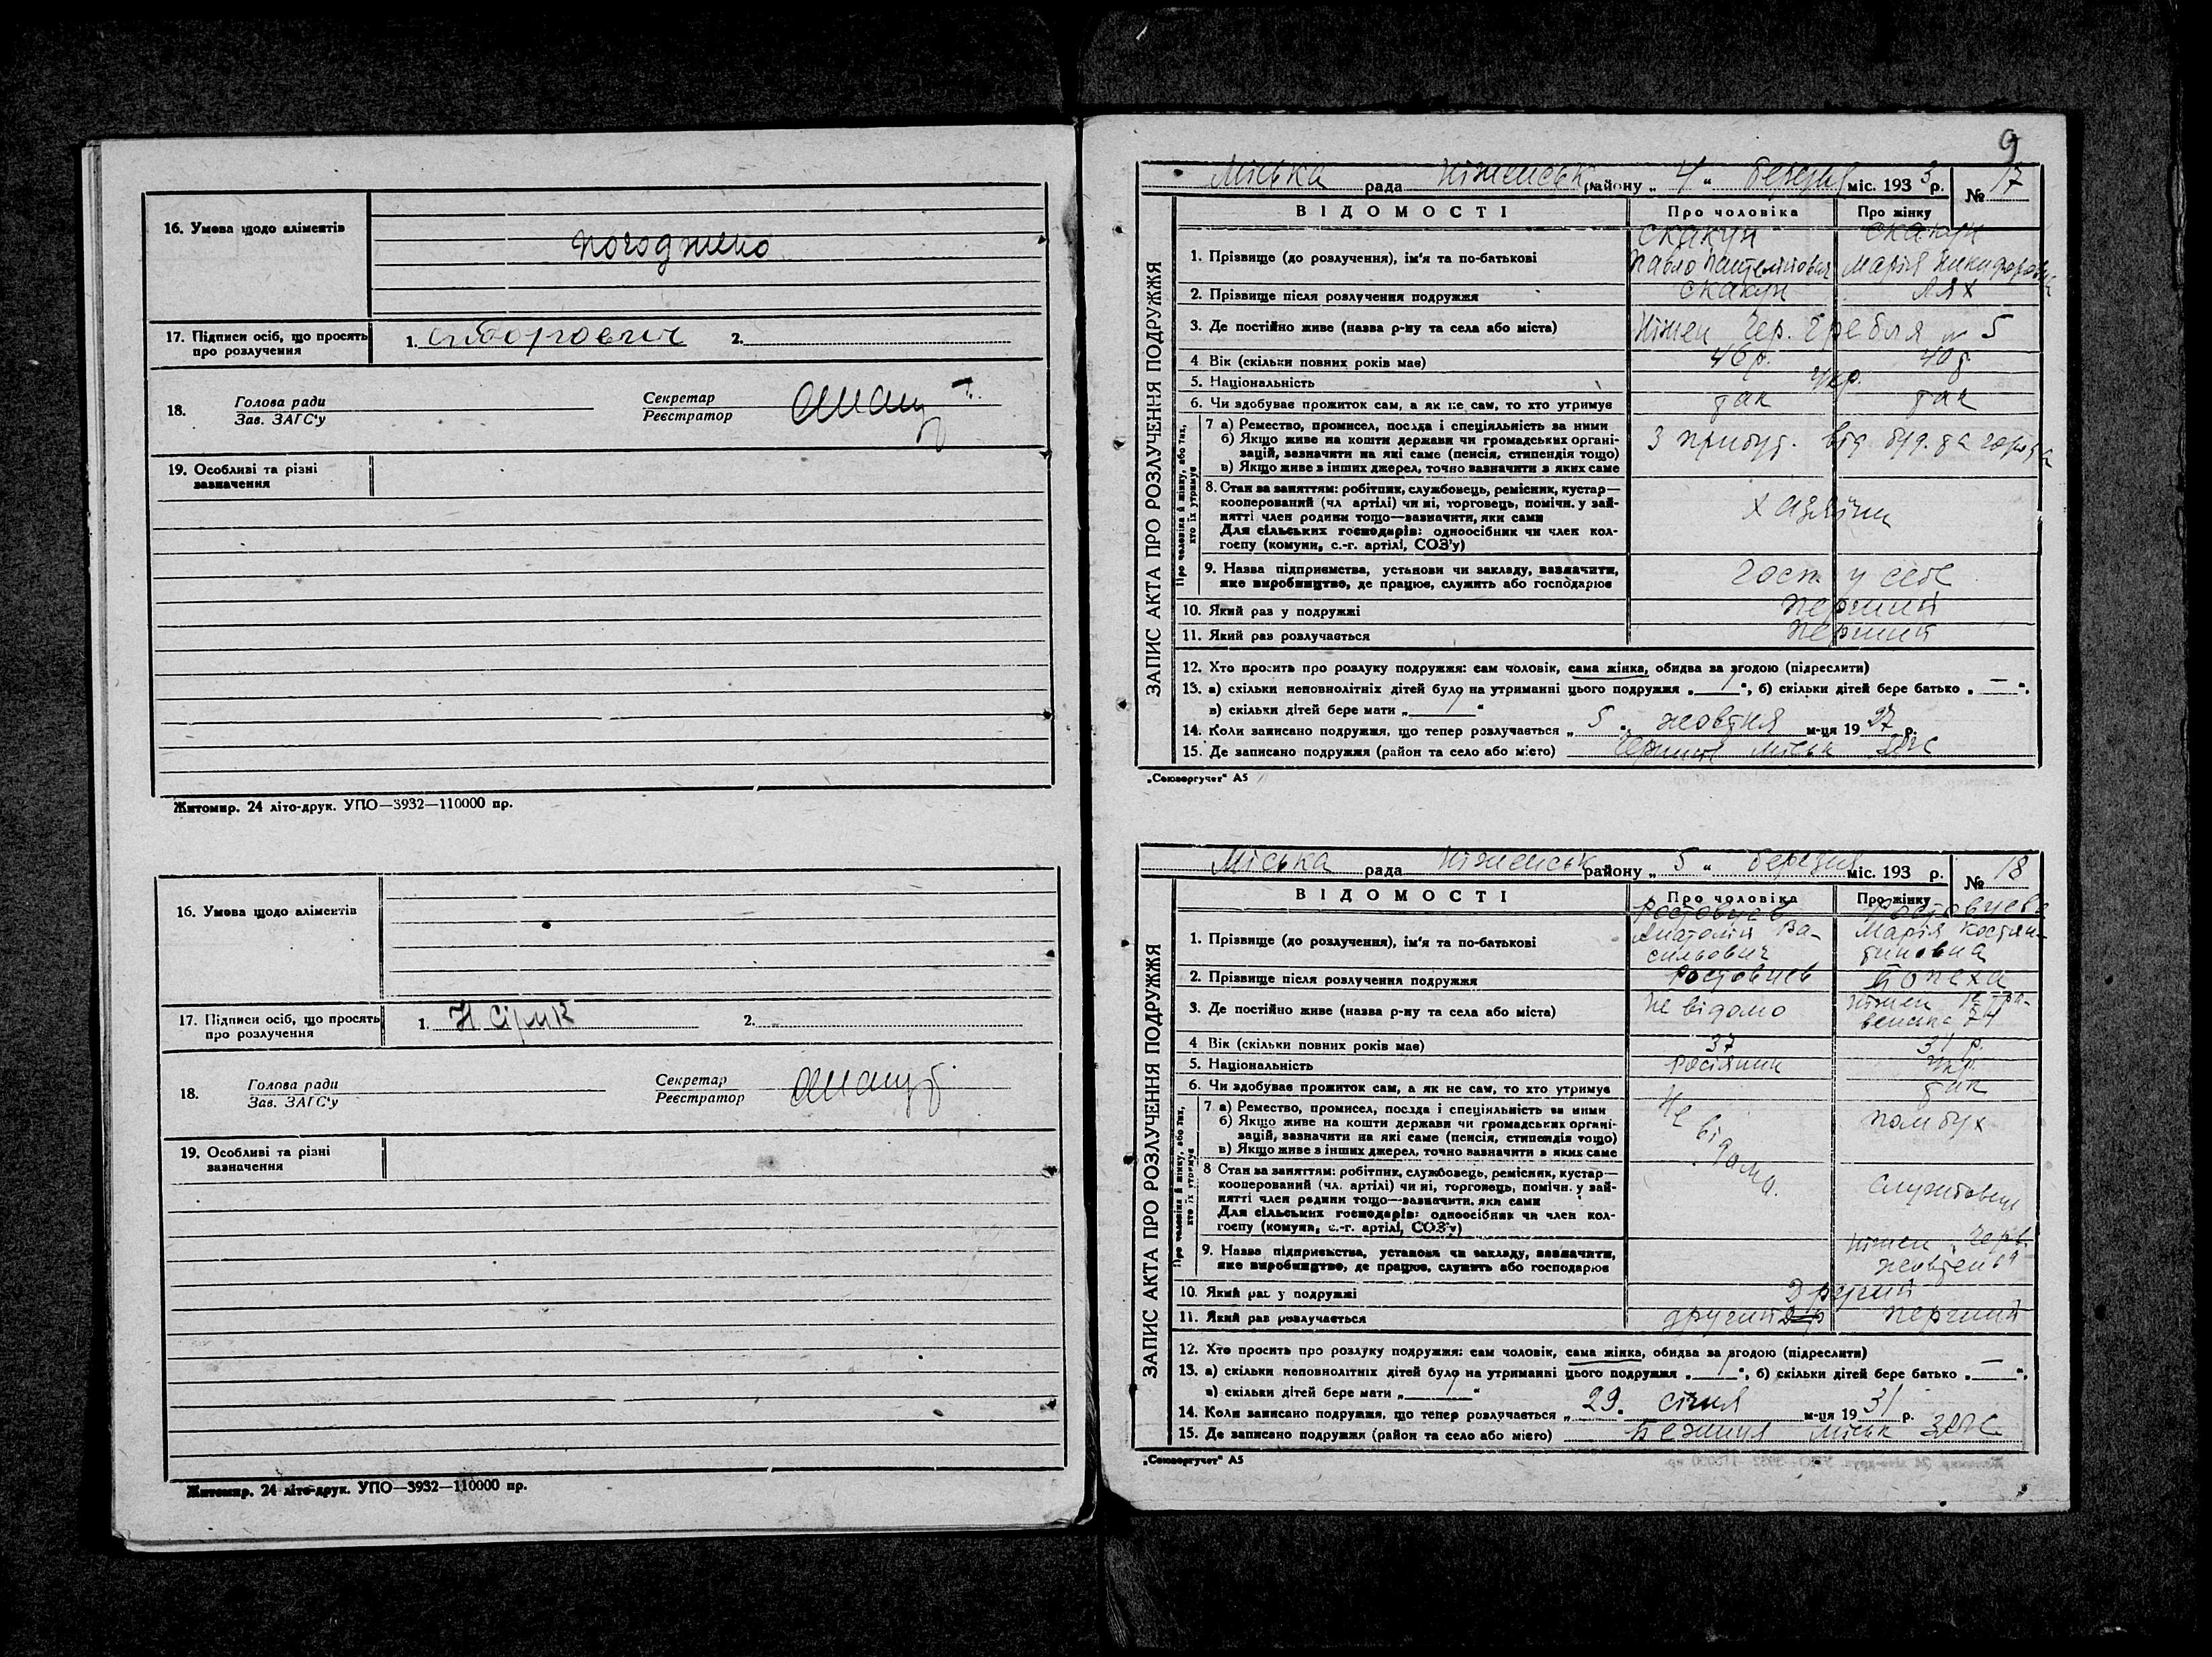 16. Умова щодо аліментів
погоджено
17. Підписи осіб, що просять про розлучення
1.
2.
18.
Голова ради
Зав. ЗАГС'у
Секретар
Реєстратор
19. Особливі та різні
зазначення
Житомир. 24 літо-друк. УПО—3932—110000 пр.
16. Умова щодо аліментів
17. Підписи осіб, що просять
про розлучення
1. Н Сірик
2.
18.
Голова ради
Зав. ЗАГС'у
Секретар
Реєстратор
19. Особливі та різні
зазначення
Житомир. 24 літо-друк. УПО—3932—110000 пр.
9
ЗАПИС АКТА ПРО РОЗЛУЧЕННЯ ПОДРУЖЖЯ
Міська рада Ніженськ району „ 4 “ березня міс. 1933 р. № 17
ВІДОМОСТІ
Про чоловіка
Про жінку
1. Прізвище (до розлучення), ім'я та по-батькові
Скакун
Павло Пантелійович
Скакун
Марія Никифоровна
2. Прізвище після розлучення подружжя
Скакун
Лях
3. Де постійно живе (назва р-ну та села або міста)
Ніжен Чер. Гребля № 5
4 Вік (скільки повних років має)
46 р.
40 р
5. Національність
Укр.
6. Чи здобуває прожиток сам, а як не сам, то хто утримує
так
так
Про чоловіка й жінку, або тих, хто їх утримує
7 а) Ремество, промисел, посада і спеціяльність за ними
б) Якщо живе на кошти держави чи громадських органі-
зацій, зазначити на які саме (пенсія, стипендія тощо)
в) Якщо живе з інших джерел, точно зазначити з яких саме
З прибут. від буд. та города
8. Стан за заняттям: робітник, службовець, ремісник, кустар—
кооперований (чл артілі) чи ні, торговець, помічн. у зай-
нятті член родини тощо—зазначити, яки сами
Для сільських господарів: одноосібник чи член кол-
госпу (комуни, с.-г. артілі, СОЗ'у)
Хазяїни
9. Назва підприємства, установи чи закладу, зазначити,
яке виробництво, де працює, служить або господарює
Госп. у себе
10. Який раз у подружжі
перший
11. Який раз розлучається
перший
12. Хто просить про розлуку подружжя: сам чоловік, сама жінка, обидва за згодою (підреслити)
13. а) скільки неповнолітніх дітей було на утриманні цього подружжя „ 1 “, б) скільки дітей бере батько „ — “,
в) скільки дітей бере мати „ 1 “
14. Коли записано подружжя, що тепер розлучається „ 5 “ жовтня м-ця 1927 р.
15. Де записано подружжя (район та село або місто) міськ ЗАГС
„Союзоргучет“ А5
ЗАПИС АКТА ПРО РОЗЛУЧЕННЯ ПОДРУЖЖЯ
Міська рада Ніженськ району „ 5 “ березня міс. 193 р. № 18
ВІДОМОСТІ
Про чоловіка
Про жінку
1. Прізвище (до розлучення), ім'я та по-батькові
Ростовцев
Анатолій Ва-
сильович
Ростовцева
Марія Костян-
тиновна
2. Прізвище після розлучення подружжя
Ростовцев
3. Де постійно живе (назва р-ну та села або міста)
Не відомо
4 Вік (скільки повних років має)
37
31 р.
5. Національність
Росіянин
Укр.
6. Чи здобуває прожиток сам, а як не сам, то хто утримує
так
Про чоловіка й жінку, або тих, хто їх утримує
7 а) Ремество, промисел, посада і спеціяльність за ними
б) Якщо живе на кошти держави чи громадських органі-
зацій, зазначити на які саме (пенсія, стипендія тощо)
в) Якщо живе з інших джерел, точно зазначити з яких саме
Не відомо.
помбух
8 Стан за заняттям: робітник, службовець, ремісник, кустар—
кооперований (чл. артілі) чи ні, торговець, помічн. у зай-
нятті член родини тощо—зазначити, яки сами
Для сільських господарів: одноосібник чи член кол-
госпу (комуни, с.-г. артілі, СОЗ'у)
Службовец
9. Назва підприємства, установи чи закладу, зазначити,
яке виробництво, де працює, служить або господарює
Ніжен. Черв.
10. Який раз у подружжі
Другий
11. Який раз розлучається
другий
перший
12. Хто просить про розлуку подружжя: сам чоловік, сама жінка, обидва за згодою (підреслити)
13. а) скільки неповнолітніх дітей було на утриманні цього подружжя „ 1 “, б) скільки дітей бере батько „ — “,
в) скільки дітей бере мати „ 1 “
14. Коли записано подружжя, що тепер розлучається „ 29 “ січня м-ця 1931 р.
15. Де записано подружжя (район та село або місто) Бежиця міськ ЗАГС
„Союзоргучет“ А5